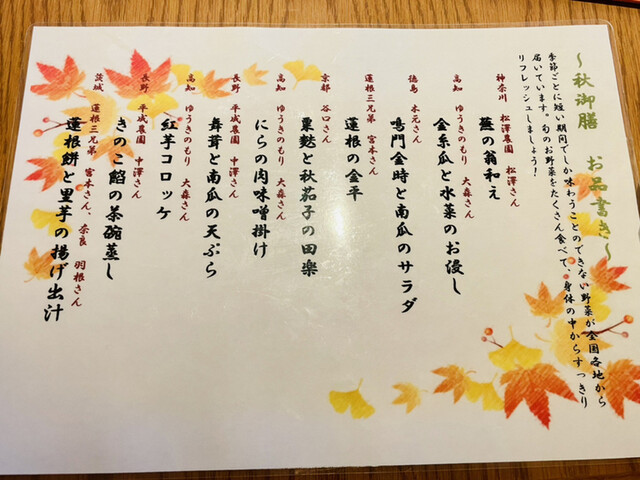 〜秋御膳 お品書き〜
季節ごとに短い期間でしか味わうことのできない野菜が全国各地から
届いています。旬のお野菜をたくさん食べて、身体の中からすっきり
リフレッシュしましょう！
神奈川 松澤農園 松澤さん
蕪の翁和え
高知 ゆうきのもり 大森さん
金糸瓜と水菜のお浸し
徳島 木元さん
鳴門金時と南瓜のサラダ
蓮根三兄弟 宮本さん
蓮根の金平
京都 谷口さん
粟麩と秋茄子の田楽
高知 ゆうきのもり 大森さん
にらの肉味噌掛け
長野 平成農園 中澤さん
舞茸と南瓜の天ぷら
高知 ゆうきのもり 大森さん
紅芋コロッケ
長野 平成農園 中澤さん
きのこ餡の茶碗蒸し
茨城 蓮根三兄弟 宮本さん、奈良 羽根さん
蓮根餅と里芋の揚げ出汁